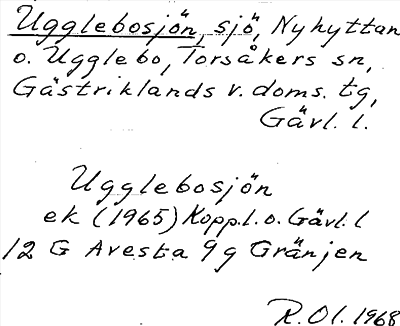 Ugglebosjön, sjö, Nyhyttan
o. Ugglebo, Torsåkers sn,
Gästriklands v. doms. tg,
Gävl. l.
Ugglebosjön
ek (1965) Kopp.l. o. Gävl. l
12 G Avesta 9g Gränjen
R. Ol. 1968